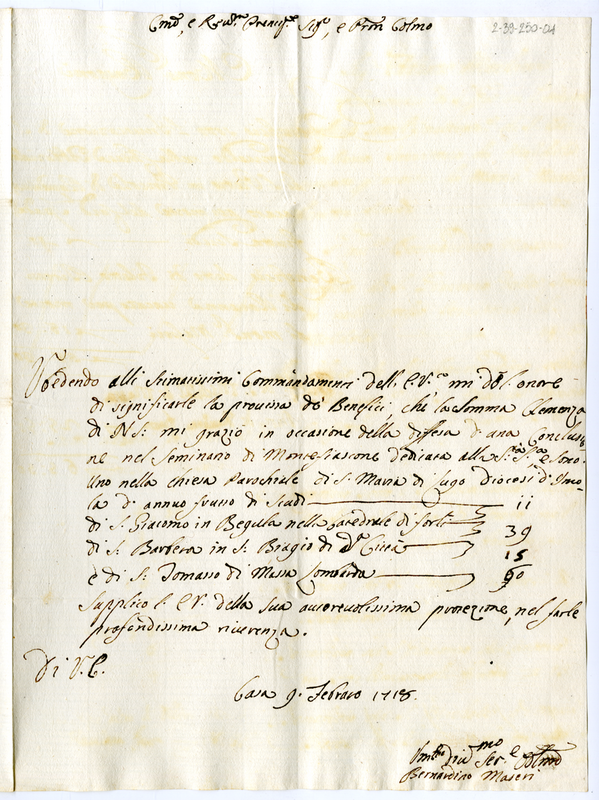 Emo, e Rev.mo Prencipe Sig.e, e Pron Colmo
2-39-250-04
Vbedendo alli stimatissimi Commandamenti dell' E.V. mi dò l'onore
di significarle la provista de' Benefici, che la somma Clemenza
di N.S. mi graziò in occasione della diffesa d'una Conclusio
ne nel Seminario di Montefiascone dedicata alla S.tà S.a, e sono
Uno nella chiesa Parochiale di S. Maria di Lugo Diocesi d'Imo
la d'annuo frutto di Scudi 11
di S. Giacomo in Regula nella Catedrale di Forlì 39
di S. Barbera in S. Biagio di d.a Città 15
e di S. Tomasso di Massa Lombarda 60
Supplico l' E.V. della sua autorevolissima protezione, nel farle
profondissima riverenza.
Di V.E.
Casa 9. Febraro 1718.
Vmilmo Div.mo Ser.e Oblmo
Bernardino Maseri